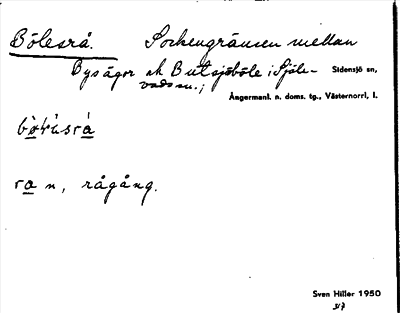 Bölesrå. Sockengränsen mellan
Bysågor ok Butsjöböle i Själe-
vads sn.;
Sidensjö sn,
Ångermanl. n. doms. tg., Västernorrl, l.
ra n, rågång.
Sven Hiller 1950
317